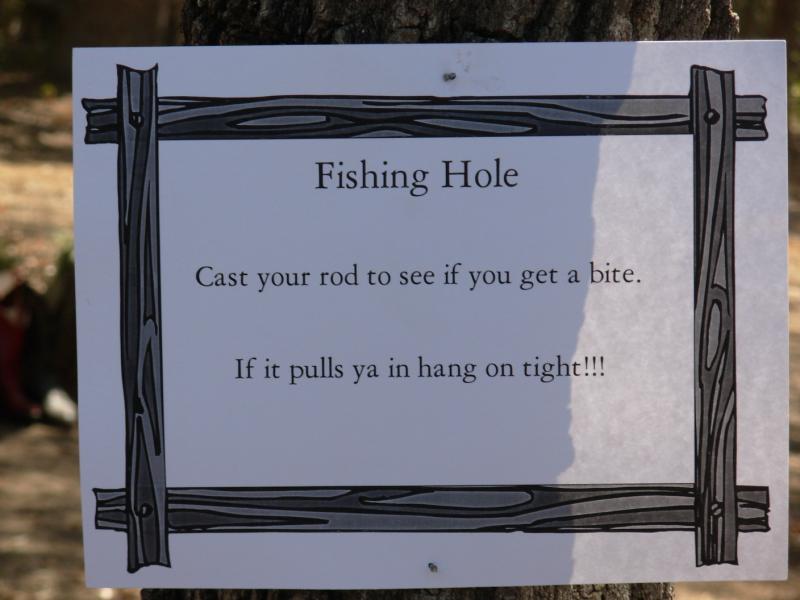 Fishing Hole
Cast your rod to see if you get a bite.
If it pulls ya in hang on tight!!!